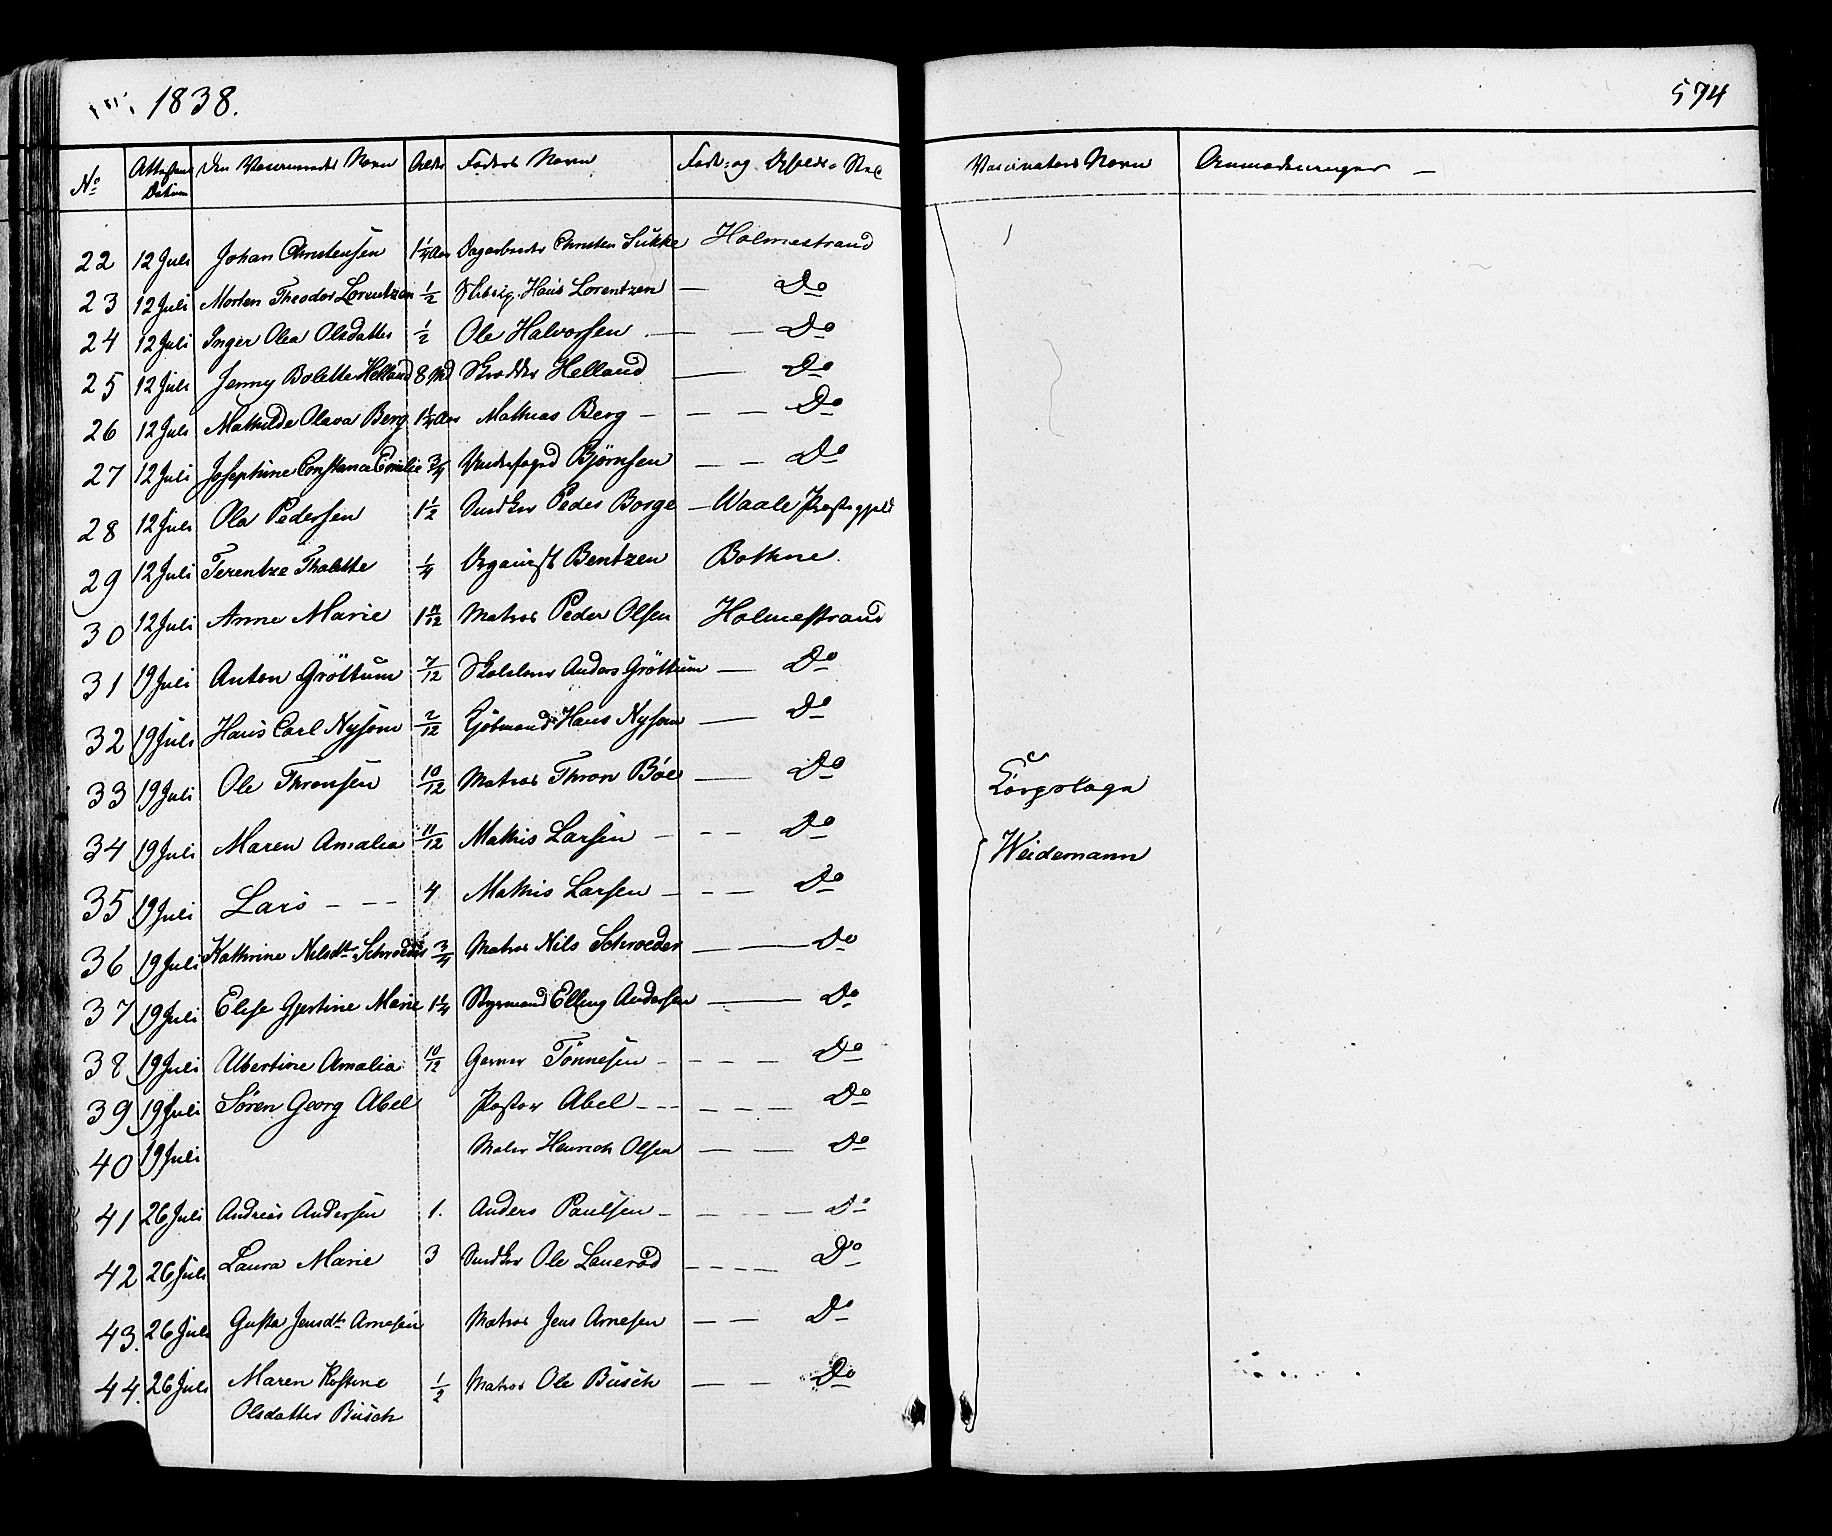 1838.
574
No Attestens Datum Den Vaccineredes Navn Alder Faders Navn Føde- og Opholds-Sted Vaccinateurs Navn Anmærkninger
22 12 Juli Johan Christensen 1 1/4 Aar Dagarbeider Christen Sukke Holmestrand
23 12 Juli Morten Theodor Lorentzen 1/2 Hans Lorentzen — Do
24 12 Juli Inger Olea Olsdatter 1/2 Ole Halvorsen — — Do
25 12 Juli Jenny Bolette Helland 8 Md Skrædder Helland — Do
26 12 Juli Mathilde Olava Berg 1 1/4 Aar Mathias Berg — — — Do
27 12 Juli Josephine Constance Emilie 3/4 Underfoged Björnsen — — Do
28 12 Juli Ola Pedersen 1 1/2 Snedker Peder Borge — Waale Præstegjeld
29 12 Juli Terentze Thalette 1/4 Organist Bentzen Bothne.
30 12 Juli Anne Marie 1 11/12 Matros Peder Olsen Holmestrand
31 19 Juli Anton Gröttum 7/12 Skolelærer Anders Gröttum — Do
32 19 Juli Hans Carl Nysom 2/12 Kjöbmand Hans Nysom — Do
33 19 Juli Ole Thronsen 10/12 Matros Thron Böe — Do
Corpslæge
34 19 Juli Maren Amalia 11/12 Mathis Larsen — — — Do
Weidemann
35 19 Juli Lars — — — 4 Mathis Larsen — — — Do
36 19 Juli Kathrine Nilsdtr Schrøder 3/4 Matros Nils Schroeder — — Do
37 19 Juli Elise Gjertine Marie 1 1/4 Styrmand Elling Andersen — Do
38 19 Juli Albertine Amalia 10/12 Garver Tönnesen — — — — Do
39 19 Juli Sören Georg Abel Pastor Abel — — — — — Do
40 19 Juli Maler Henrich Olsen — — Do
41 26 Juli Andreas Andersen 1. Anders Paulsen — — — — Do
42 26 Juli Laura Marie 3 Snedker Ole Laueröd — — — — Do
43. 26 Juli Gusta Jensdtr Arnesen Matros Jens Arnesen — — Do
44. 26 Juli Maren Kistine 1/2 Matros Ole Busch — — Do
Olsdatter Busch